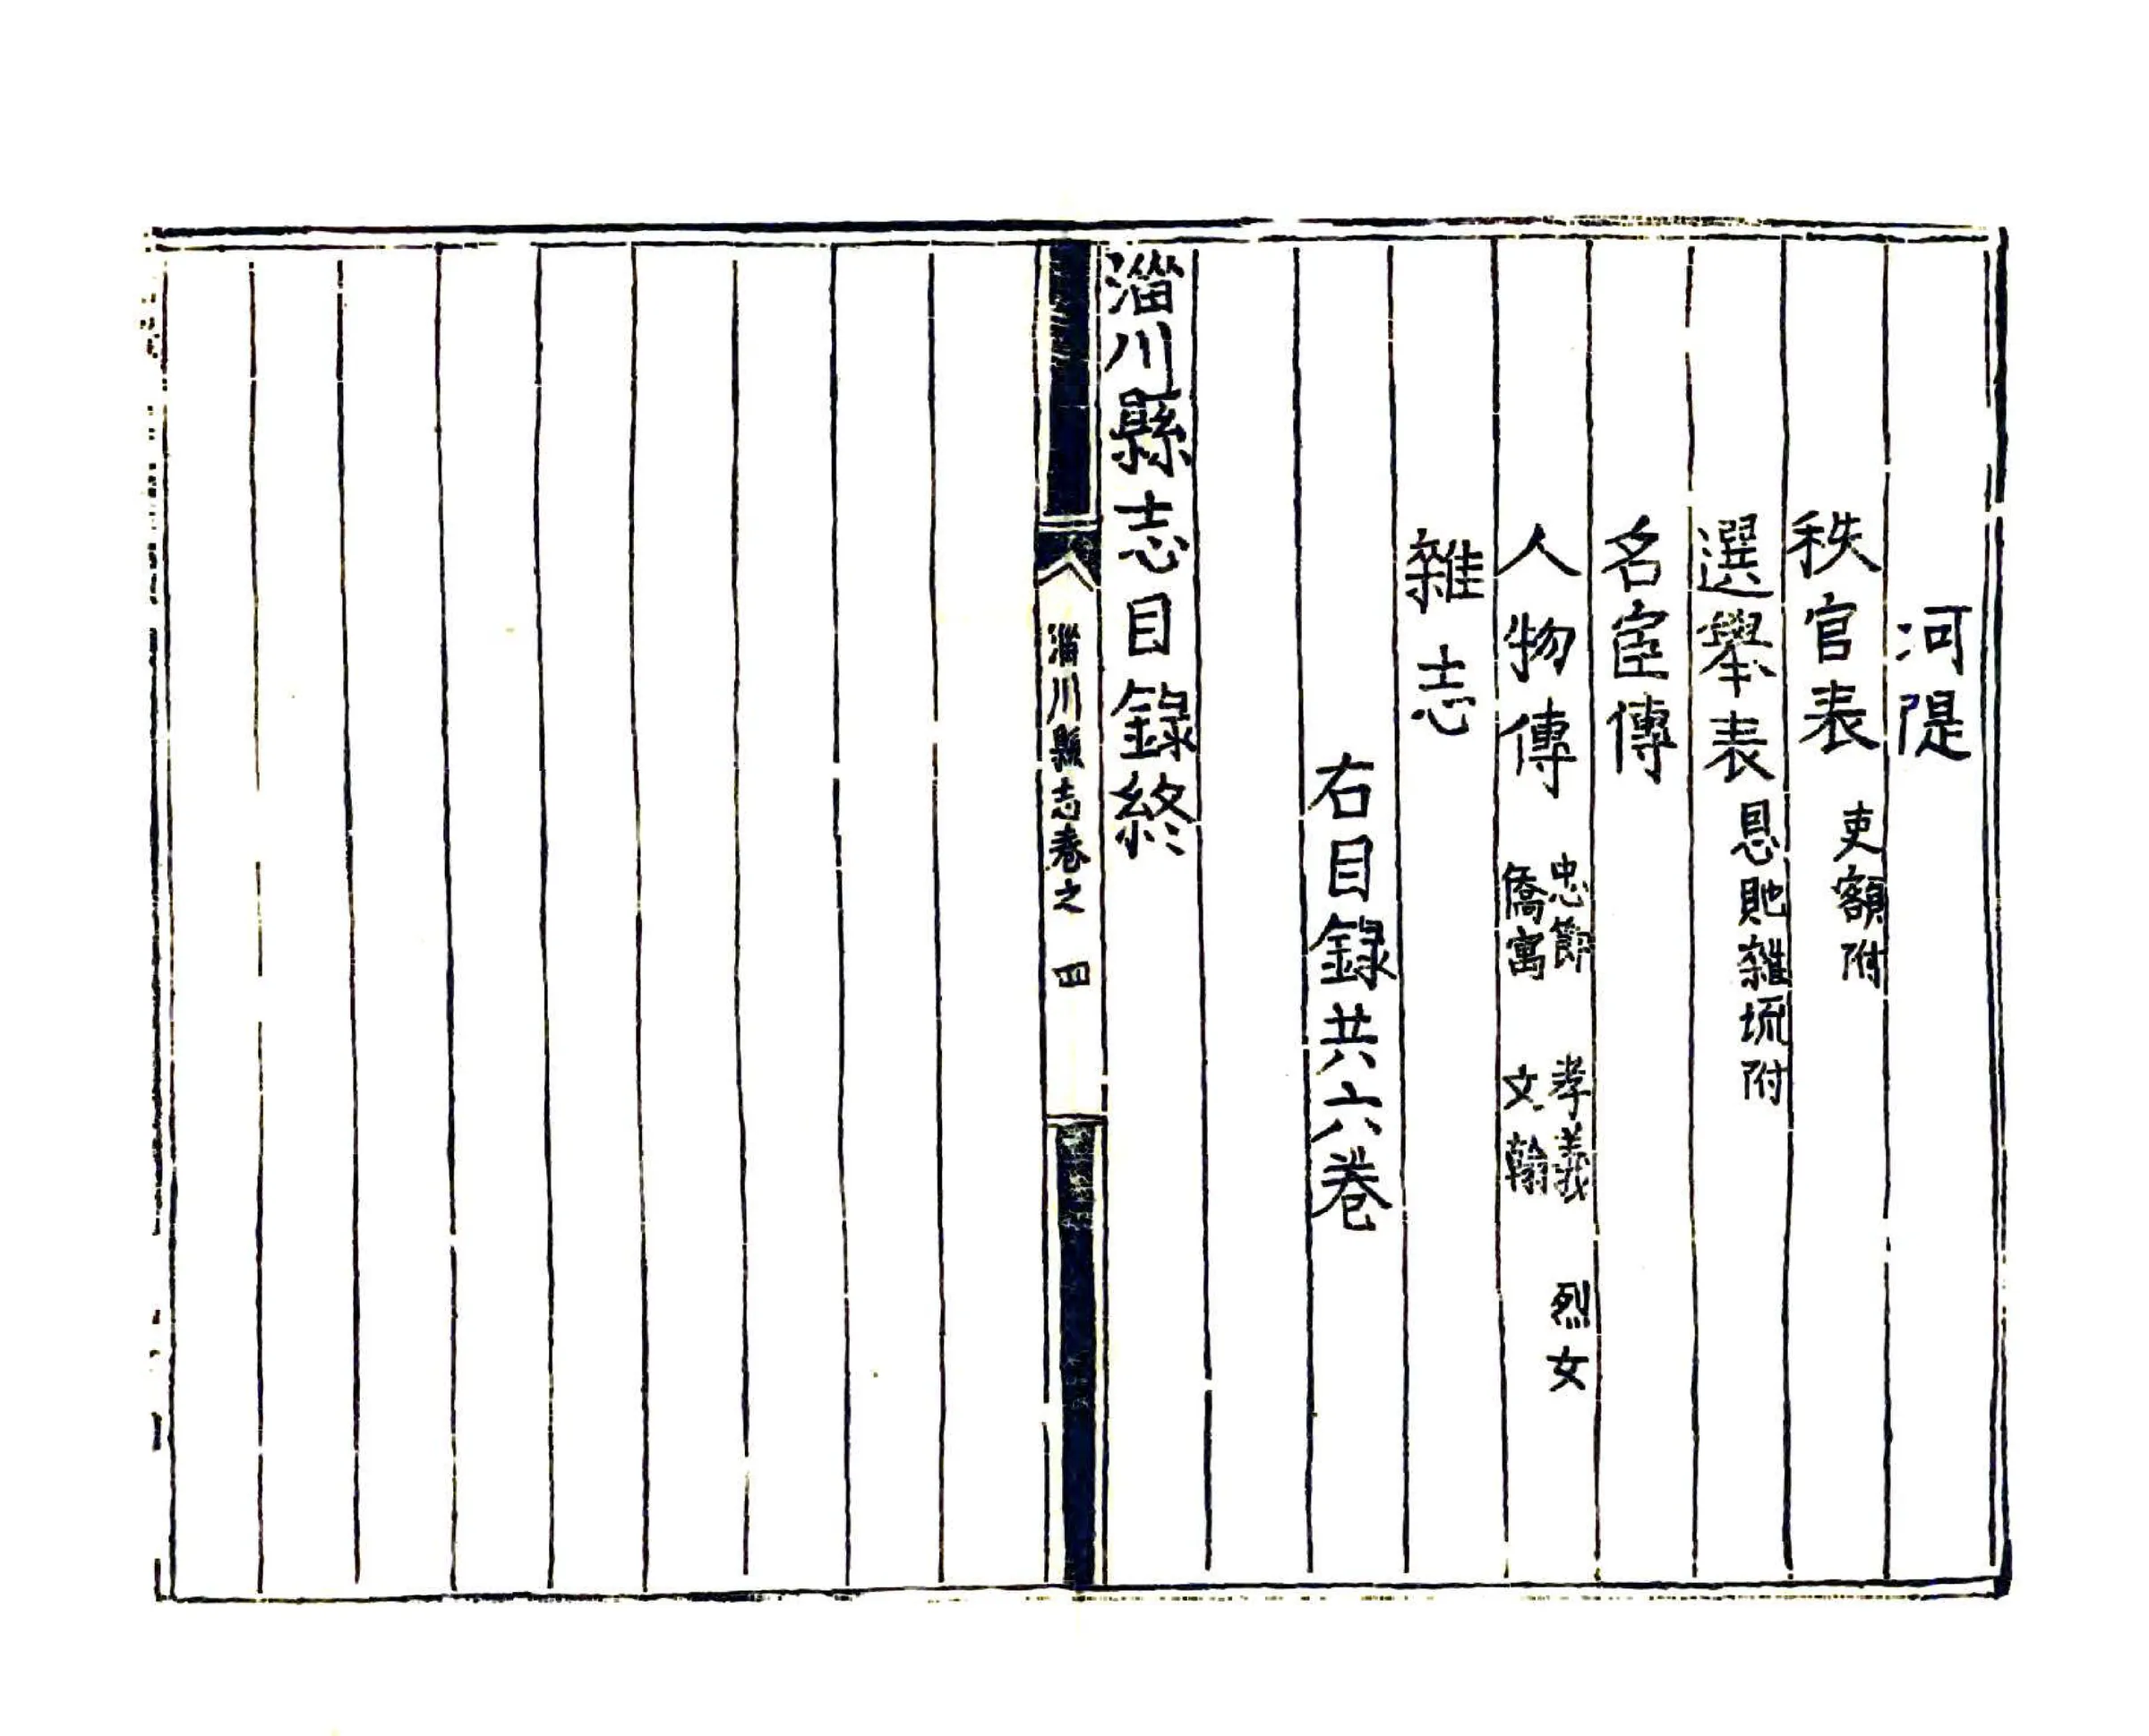 河隄
秩官表 吏額附
選舉表 恩貤雜㳅附
名宦傳
人物傳 忠節 孝義 烈女
僑寓 文翰
雜志
右目錄共六卷
淄川縣志目錄終
淄川縣志卷之 四